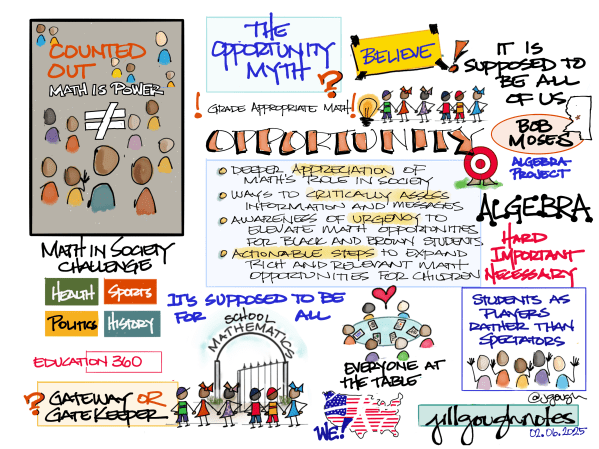 COUNTED
OUT
MATH IS POWER
≠
THE
OPPORTUNITY
MYTH
?
BELIEVE
!
IT IS
SUPPOSED TO
BE ALL
OF US
! GRADE APPROPRIATE MATH !
BOB
MOSES
ALGEBRA
PROJECT
OPPORTUNITY
DEEPER APPRECIATION OF
MATH'S ROLE IN SOCIETY
WAYS TO CRITICALLY ASSESS
INFORMATION AND MESSAGES
AWARENESS OF URGENCY TO
ELEVATE MATH OPPORTUNITIES
FOR BLACK AND BROWN STUDENTS
ACTIONABLE STEPS TO EXPAND
RICH AND RELEVANT MATH
OPPORTUNITIES FOR CHILDREN
ALGEBRA
HARD
IMPORTANT
NECESSARY
MATH IN SOCIETY
CHALLENGE
HEALTH
SPORTS
POLITICS
HISTORY
EDUCATION 360
? GATEWAY OR
GATEKEEPER
IT'S SUPPOSED TO BE
FOR ALL
SCHOOL
MATHEMATICS
EVERYONE AT
THE TABLE
WE!
STUDENTS AS
PLAYERS
RATHER THAN
SPECTATORS
@jgough
jillgoughnotes
02.06.2025